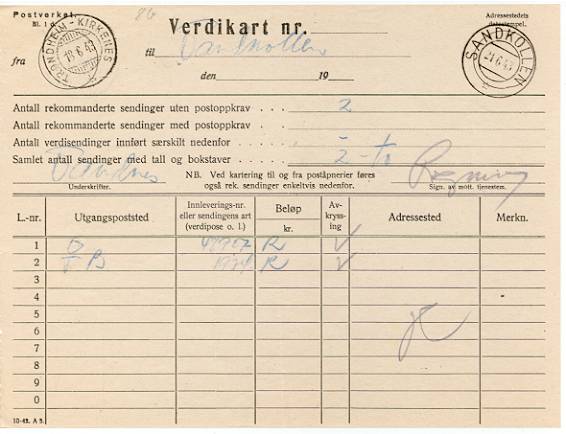 Postverket.
Bl. 1 d
86
Verdikart nr.
Adressestedets
datostempel.
TRONDHEIM - KIRKENES
18·6·43
fra
til Sandkollen
SANDKOLLEN
den 19
Antall rekommanderte sendinger uten postoppkrav . . . 2
Antall rekommanderte sendinger med postoppkrav . . .
Antall verdisendinger innført særskilt nedenfor . . . . -
Samlet antall sendinger med tall og bokstaver . . . 2 - to
Underskrifter.
NB. Ved kartering til og fra poståpnerier føres
også rek. sendinger enkeltvis nedenfor.
Sign. av mott. tjenestem.
L.-nr. Utgangspoststed Innleverings-nr. eller sendingens art (verdipose o. l.) Beløp kr. Av-kryss-ing Adressested Merkn.
1 R V
2 B R V
3
4
5
6
7
8
9
0
10-42. A 5.